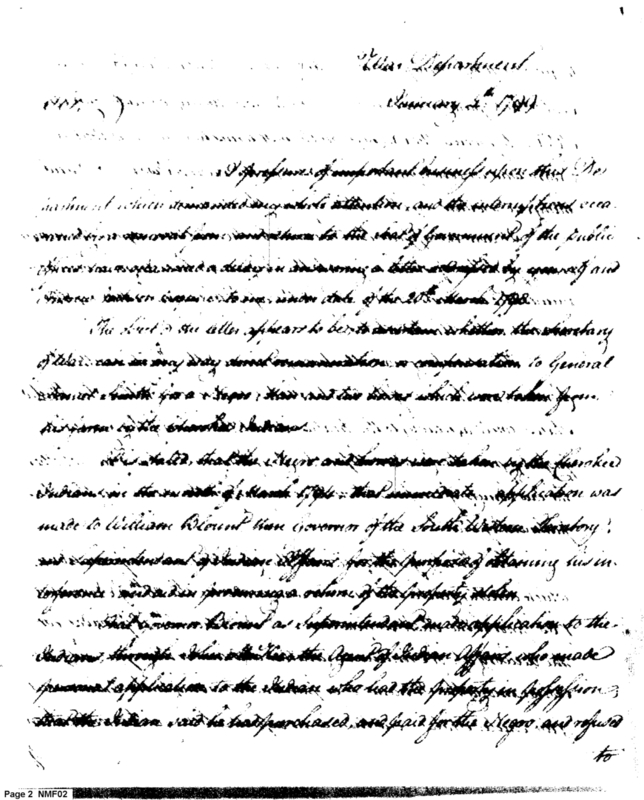 War Department
January 2th 1799
Sir,
A pressure of important business upon this De-
partment which demanded my whole attention, and the interruptions occa-
by a removal from and return to the Seat of Government of the public
a delay in answering a letter by yourself and
Andrew Jackson to me under date of the 20th March 1798
The object of the letter appears to be to ascertain whether the Secretary
of War can in any way direct remuneration or compensation to General
Smith for a Negro Man and two horses which were taken from
his by the Cherokee Indians
It is stated, that the Negro and horses were taken by the Cherokee
Indians in the month of March 1794, that immediate application was
made to William Blount then Governor of the South Western Territory,
and Superintendant of Indian Affairs for the purpose of obtaining his in-
terference and aid in procuring a return of the property stolen
That Governor Blount as Superintendant made application to the
Indians through John McKee the Agent of Indian Affairs who made
personal application to the Indian who had the property in possession
that the Indian said he had purchased and paid for the Negro and refused
to
Page 2 NMF02